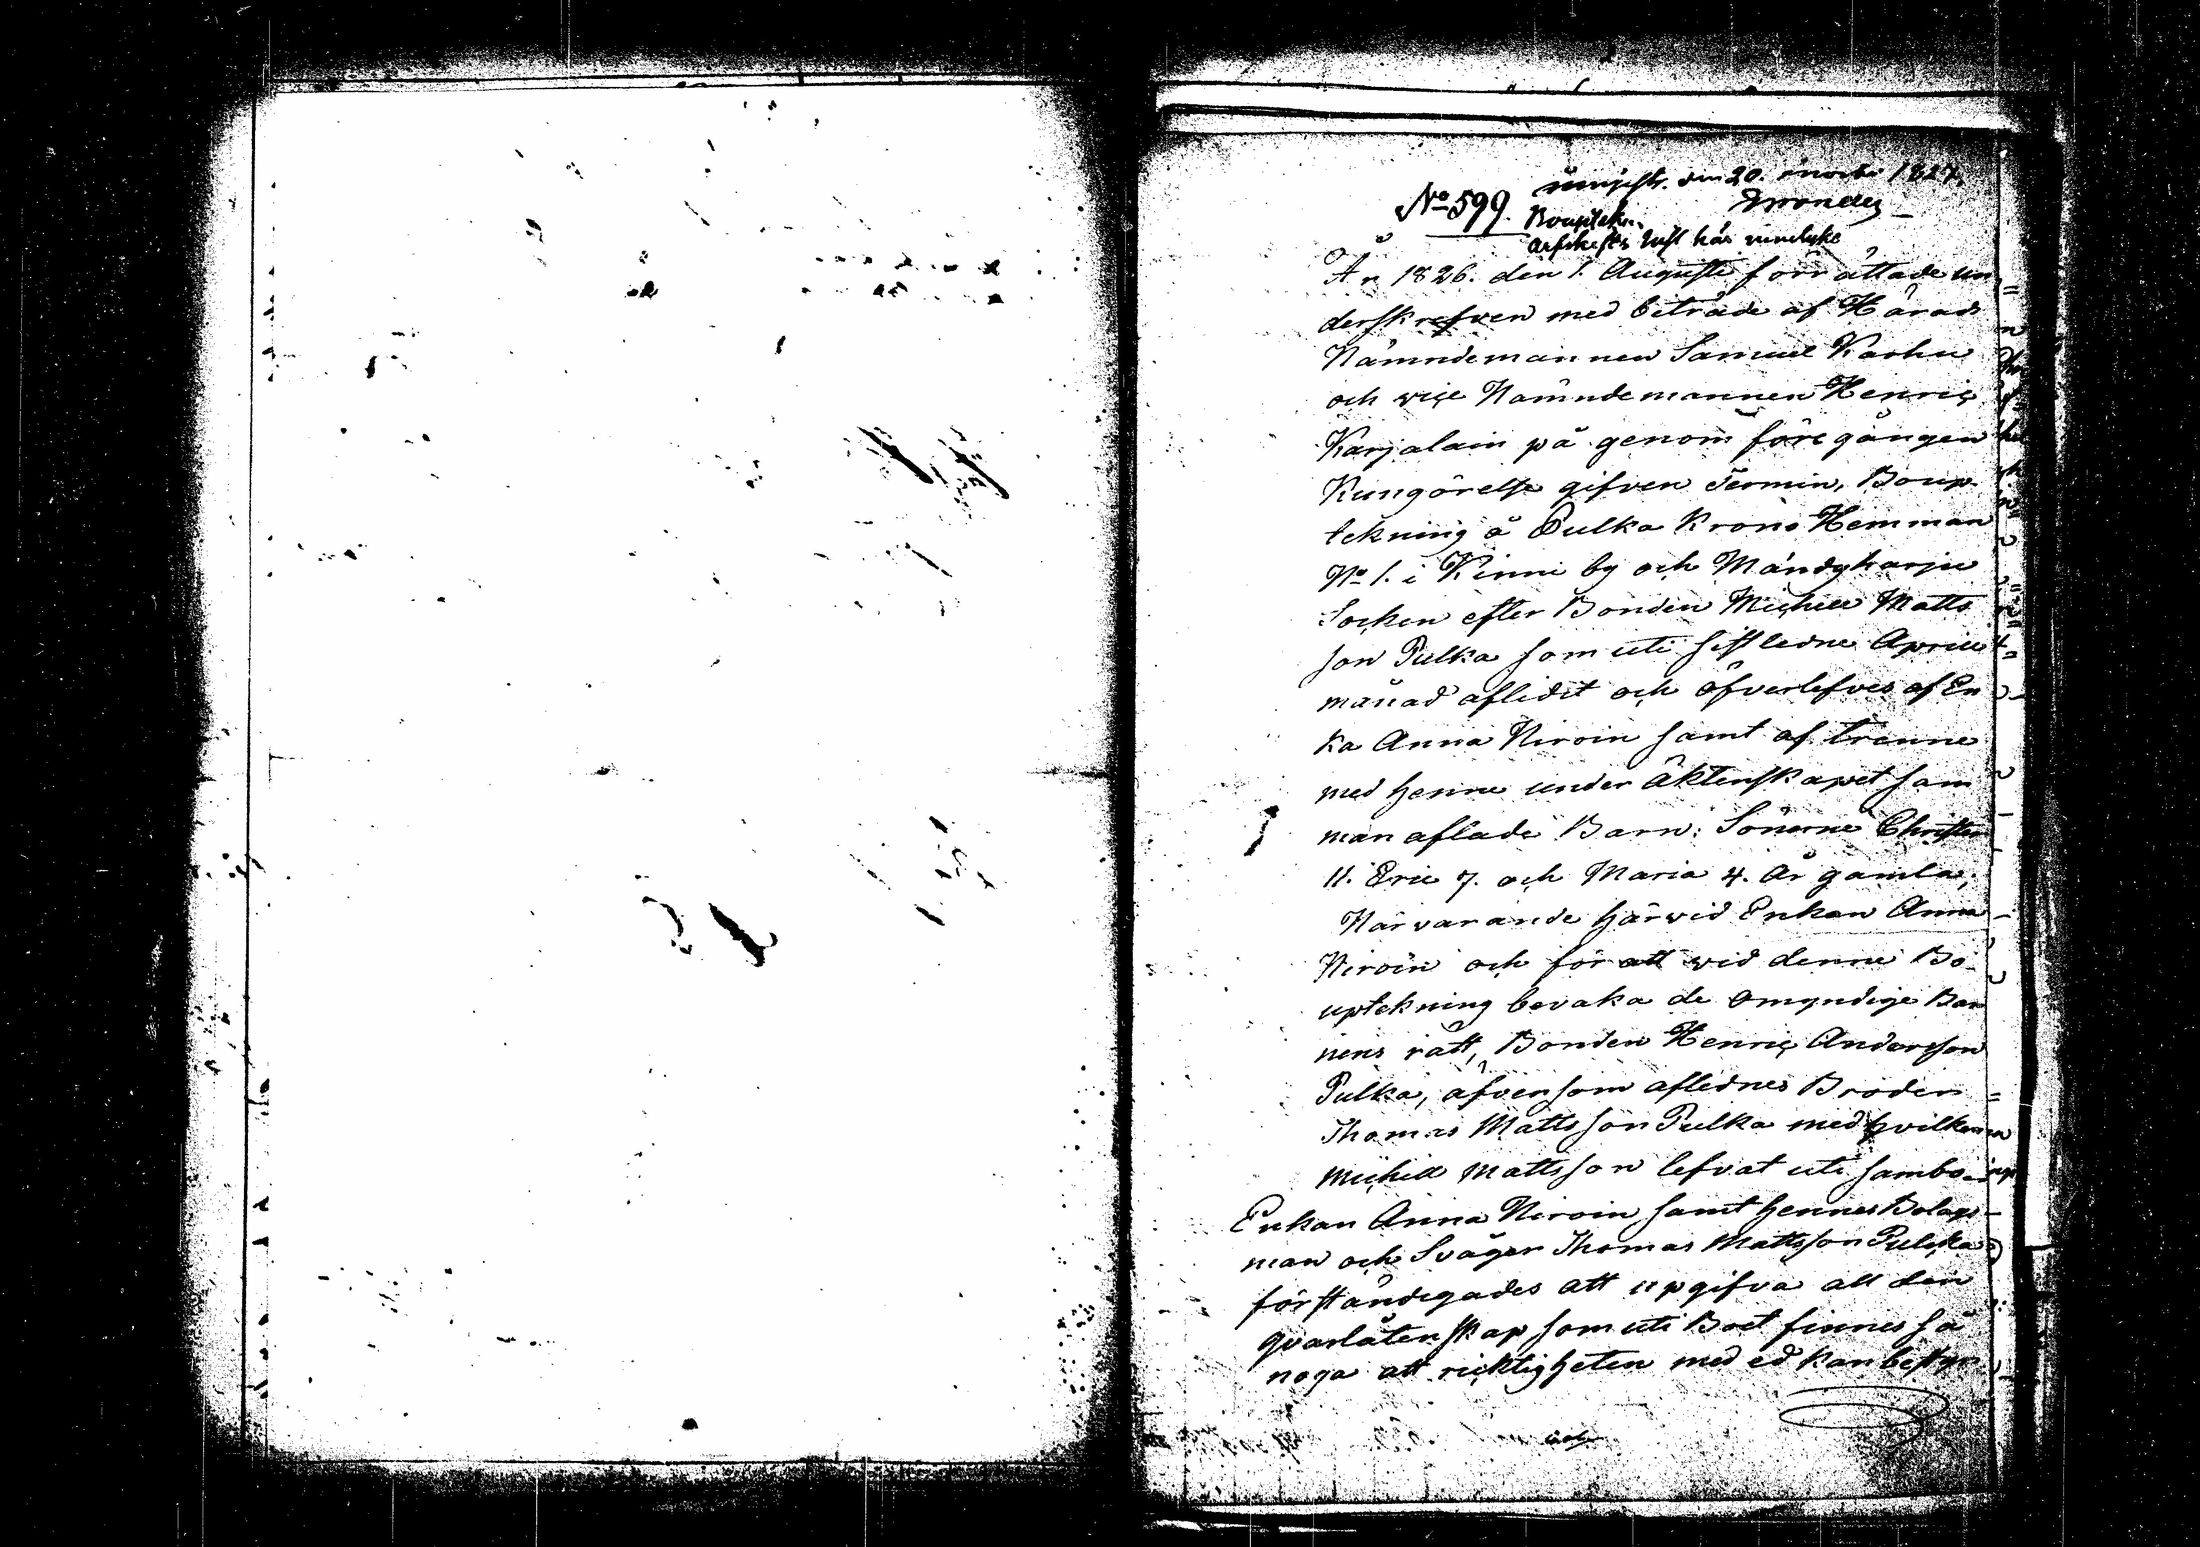 den 20. 1827.
No 599.
År 1826. den 1. Augusti förrättade un
derskrefven med biträde af Härads
Nämndemannen Samuel Karhu
och viçe Nämndemannen Henriç
Karjalain på genom föregången
Kungörelse gifven Termin, Boup
tekning å Pulka Krono Hemman
No 1. i Kinni by och Mändyharju
Socken efter Bonden Michell Matts
son Pulka som uti sistledne Aprill
månad aflidit och öfverlefves af En
ka Anna Niroin samt af trenne
med henne under äktenskapet sam
man aflade Barn: Sönerne Christer
11. Eric 7. och Maria 4. år gamla;
Närvarande härvid Enkan Anna
Niroin och för att vid denne Bo
uptekning bevaka de omyndige Bar
nens rätt, Bonden Henriç Andersson
Pulka, äfvensom aflednes Broder
Thomas Mattsson Pulka med hvilken
Michell Mattsson lefvat uti sambo
Enkan Anna Niroin samt hennes Bolags
man och Svåger Thomas Mattsson Pulka
förständigades att upgifva all den
qvarlåtenskap som uti Boet finnes så
noga att ricktigheten med ed kan bestyr